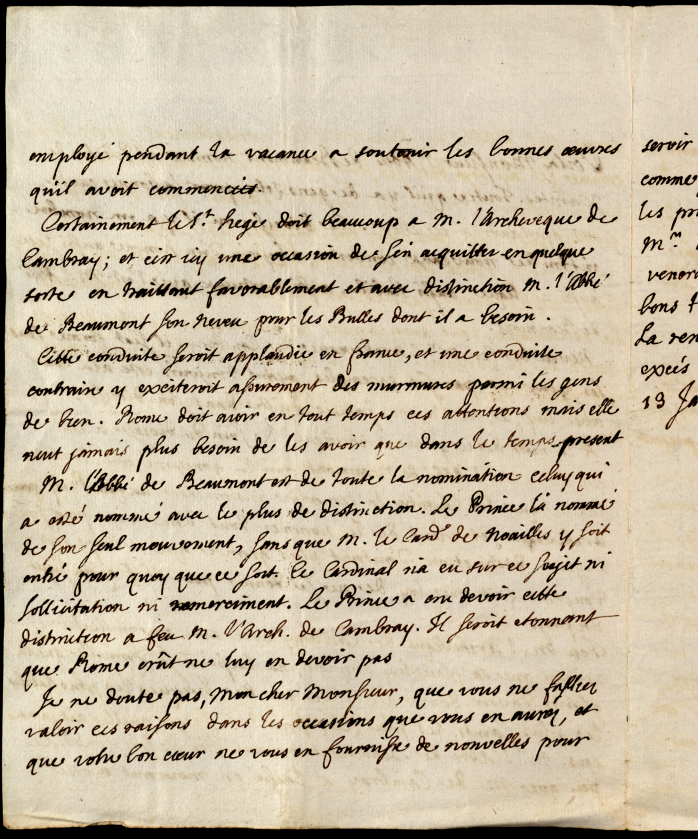 employé pendant la vacance a soutenir les bonnes œuvres
qu'il avoit commencées.
Certainement le St. Siege doit beaucoup a M. l'Archeveque de
Cambray; et c'est icy une occasion de s'en acquitter en quelque
sorte en traittant favorablement et avec distinction M. l'Abbé
de Beaumont son neveu pour les Bulles dont il a besoin.
Cette conduite seroit applaudie en france, et une conduite
contraire y exciteroit assurement des murmures parmi les gens
de bien. Rome doit avoir en tout temps ces attentions mais elle
neut jamais plus besoin de les avoir que dans le temps present
M. l'Abbé de Beaumont est de toute la nomination celuy qui
a esté nommé avec le plus de distinction. Le Prince l'a nommé
de son seul mouvement, sans que M. le Card. de Noailles y soit
entré pour quoy que ce soit. Ce Cardinal n'a eu sur ce sujet ni
sollicitation ni remerciment. Le Prince a cru devoir cette
distinction a feu M. l'Arch. de Cambray. Il seroit etonnant
que Rome crût ne luy en devoir pas
Je ne doute pas, Mon cher Monsieur, que vous ne fassiez
valoir ces raisons dans les occasions que vous en aurez, et
que votre bon cœur ne vous en fournisse de nouvelles pour
servir
comme
les pr
M.
venera
bons
La ren
excés
13 Ja